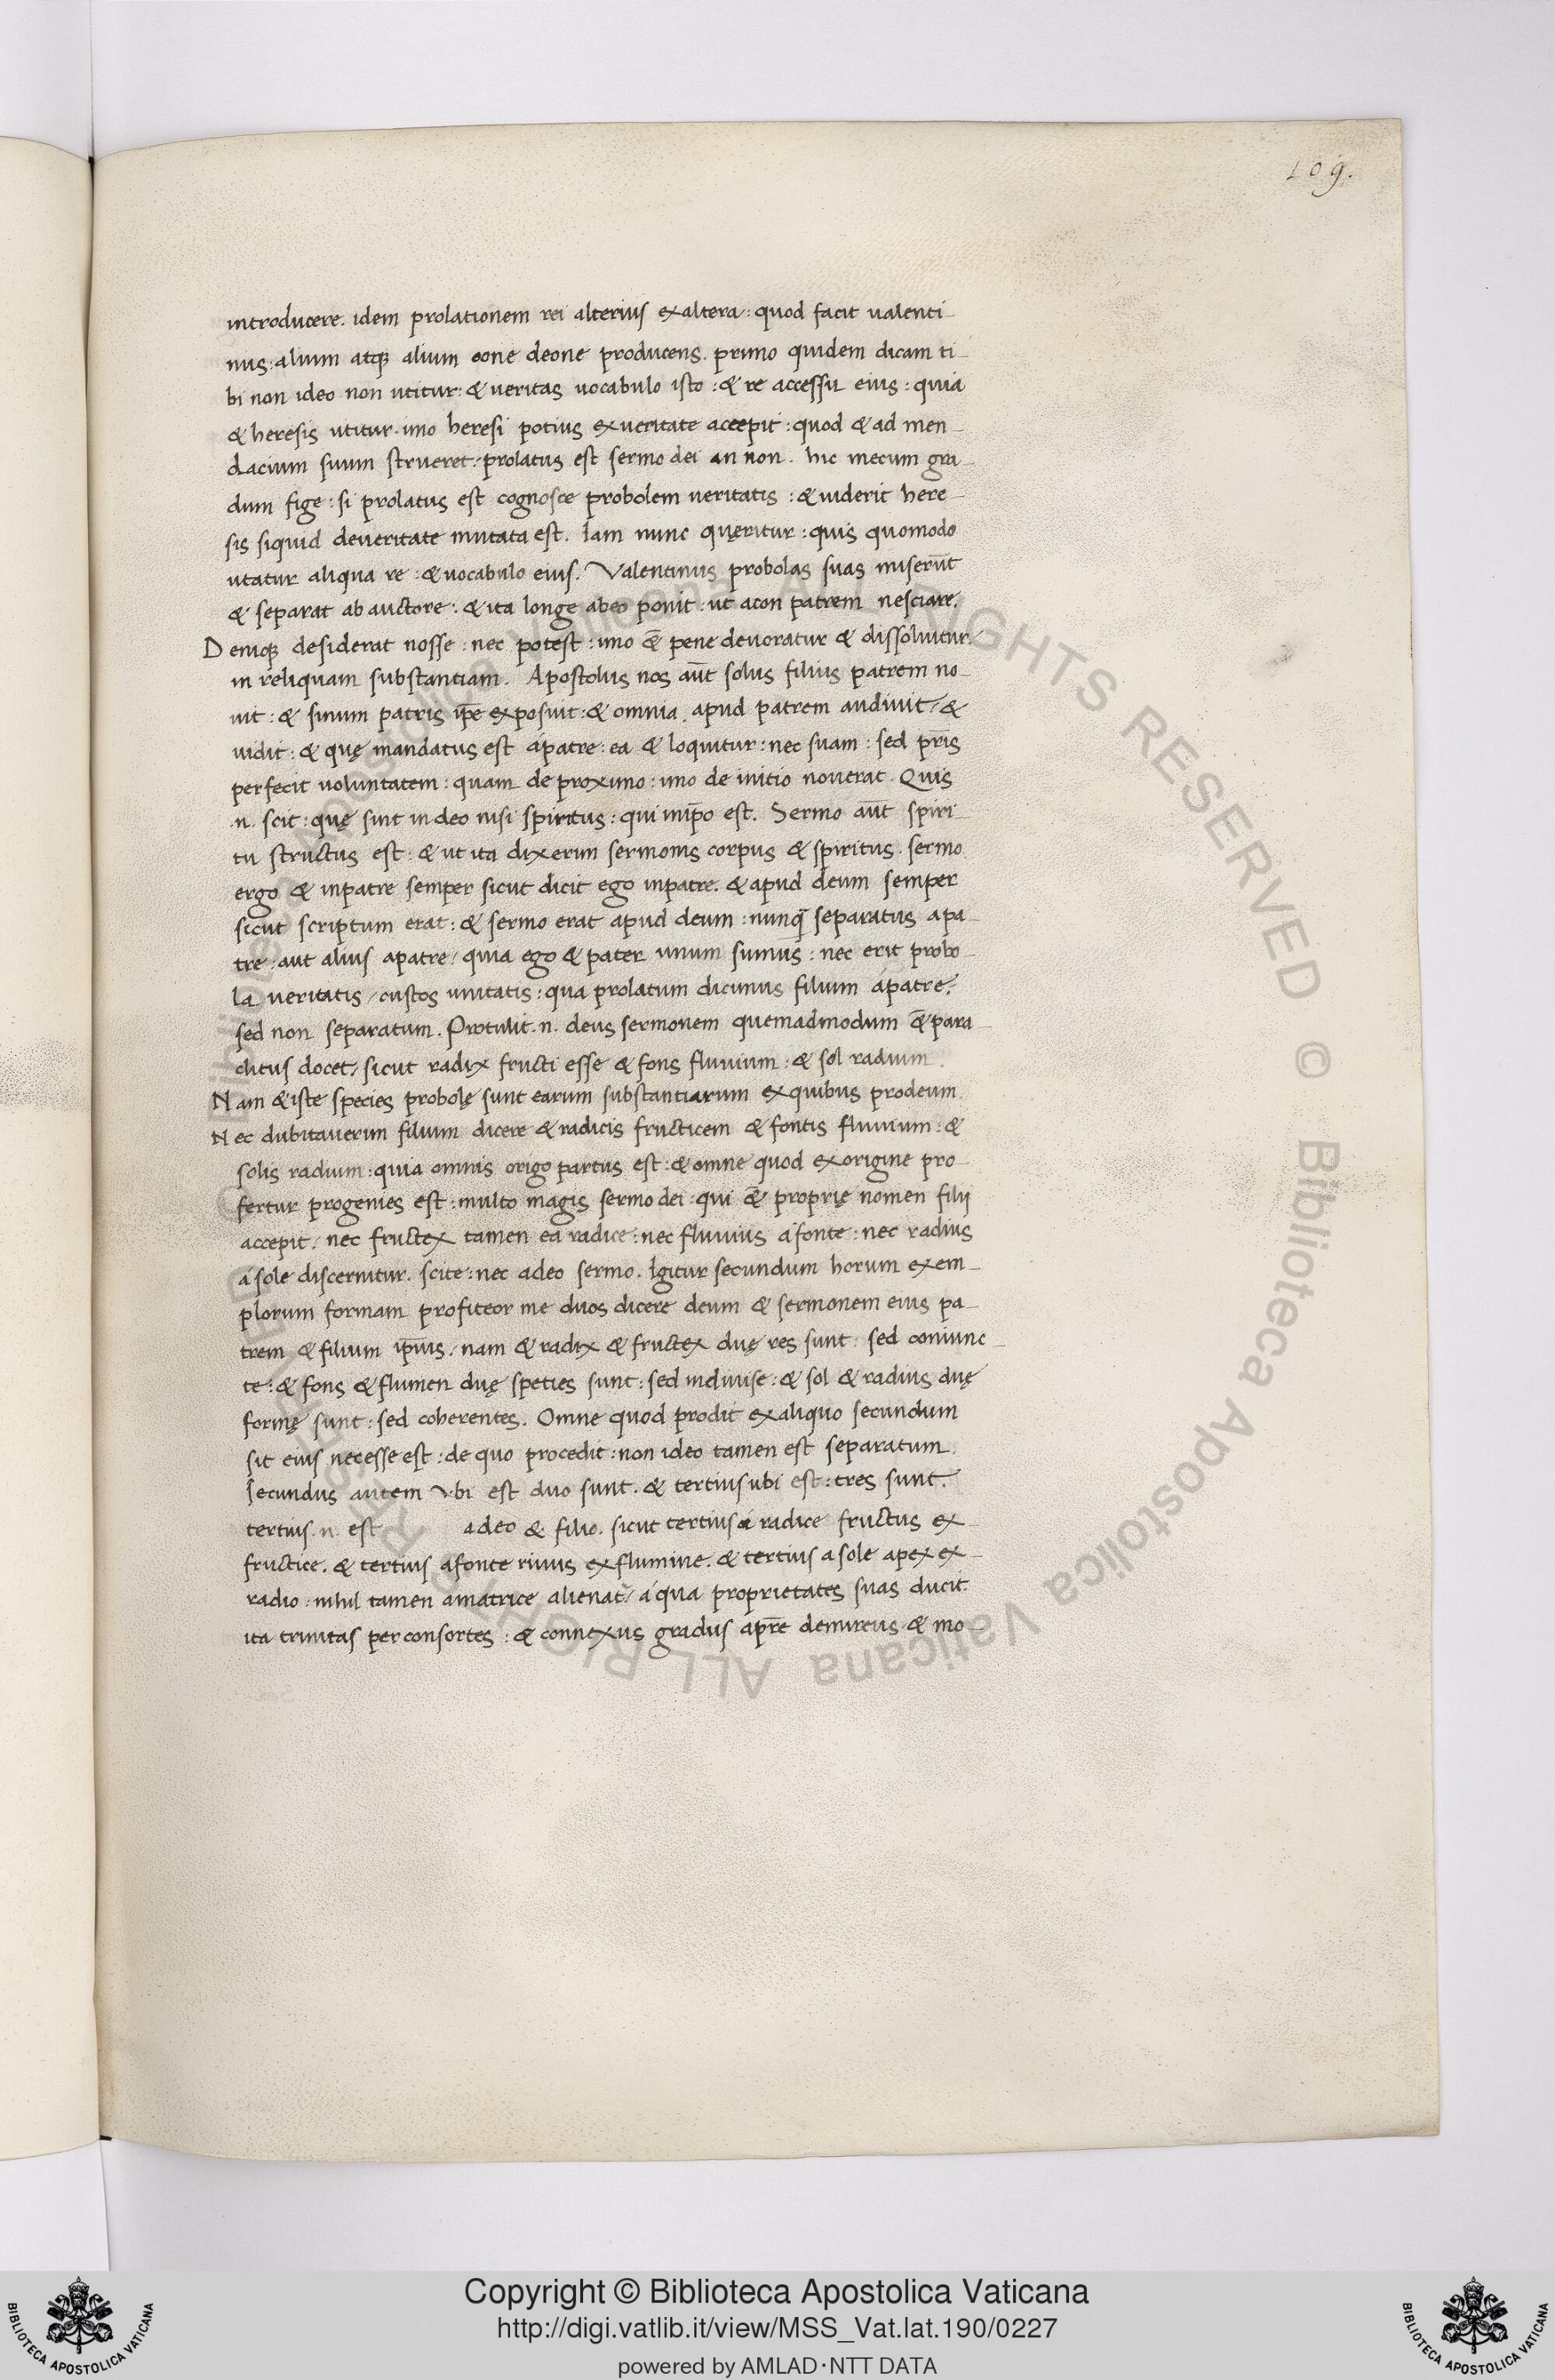 109.
introducere. idem prolationem rei alterius exaltera: quod facit ualenti-
nus: alium atq; alium eone deone producens. primo quidem dicam ti-
bi non ideo non utitur: & ueritas uocabulo isto: & re accessu eius: quia
& heresis utitur. imo heresi potius exueritate accepit: quod & ad men-
dacium suum strueret. prolatus est sermo dei an non. hic mecum gra-
dum fige: si prolatus est cognosce probolem ueritatis: & uiderit here-
sis siquid deueritate mutata est. Iam nunc quęritur: quis quomodo
utatur aliqua re: & uocabulo eius. Valentinus probolas suas miserūt
& separat ab auctore: & ita longe abeo ponit: ut acon patrem nesciare.
Deniq; desiderat nosse: nec potest: imo &̄ pene deuoratur & dissoluitur
in reliquam substantiam. Apostolus nos aūt solus filius patrem no-
uit: & sinum patris ip̄e exposuit: & omnia apud patrem audiuit: &
uidit: & quę mandatus est ápatre: ea & loquitur: nec suam: sed pr̄is
perfecit uoluntatem: quam de proximo: imo de initio nouerat. Quis
.n. scit: quę sint in deo nisi spiritus: qui inip̄o est. Sermo aūt spiri-
tu structus est: & ut ita dixerim sermonis corpus & spiritus. sermo
ergo & inpatre semper sicut dicit ego inpatre. & apud deum semper
sicut scriptum erat: & sermo erat apud deum: nunq̄ separatus apa-
tre: aut alius apatre/ quia ego & pater unum sumus: nec erit probo-
la ueritatis/ custos unitatis: qua prolatum dicimus filium ápatre:
sed non separatum. Protulit .n. deus sermonem quemadmodum &̄ para-
clitus docet, sicut radix fructi esse & fons fluuium: & sol radium.
Nam & iste species probolę sunt earum substantiarum exquibus prodeum.
Nec dubitauerim filium dicere & radicis fructicem & fontis fluuium: &
solis radium: quia omnis origo partus est: & omne quod exorigine pro-
fertur progenies est: multo magis sermo dei: qui &̄ proprię nomen filij
accepit. nec fructex tamen ea radice: nec fluuius áfonte: nec radius
ásole discernitur. scite: nec adeo sermo. Igitur secundum horum exem-
plorum formam profiteor me duos dicere deum & sermonem eius pa-
trem & filium ip̄ius. nam & radix & fructex duę res sunt: sed coniunc-
te: & fons & flumen duę speties sunt: sed indiuise: & sol & radius duę
formę sunt: sed coherentes. Omne quod prodit exaliquo secundum
sit eius necesse est: de quo procedit: non ideo tamen est separatum.
Secundus autem ubi est duo sunt. & tertius ubi est: tres sunt.
tertius .n. est adeo & filio. sicut tertius á radice fructus ex-
fructice. & tertius áfonte riuus exflumine. & tertius asole apex ex-
radio. nihil tamen amatrice alienat/ áqua proprietates suas ducit.
ita trinitas perconsortes: & connexus gradus apr̄e demireus & mo-
Copyright © Biblioteca Apostolica Vaticana
http://digi.vatlib.it/view/MSS_Vat.lat.190/0227
powered by AMLAD·NTT DATA